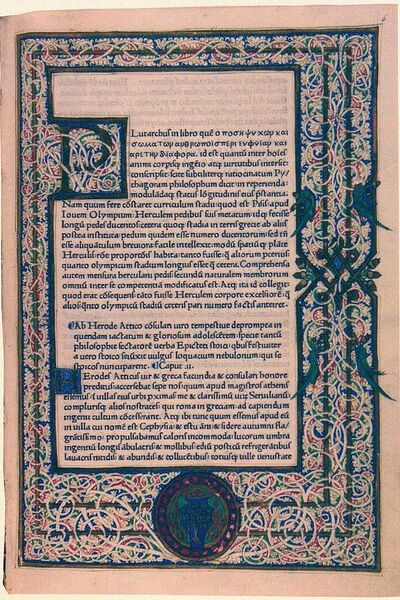 PLutarchus in libro quē ὁποση ψυχων και
σωματων ανθρωποισ περι ευφυίαν και
αρετην διαφορα. id est quantū inter hoīes
animi corpisq; ingēio atq; uirtutibus intersit:
conscripsit. scite subtiliterq; ratiocinatum Py/
thagoram philosophum dicit in reperienda:
modulādaq; status lōgitudinisq; eius p̄stantia.
Nam quum fere cōstaret curriculum stadii: quod est Pisis apud
Iouem Olympium: Herculem pedibus suis metatum: idq; fecisse
longū pedes ducentos: cetera quoq; stadia in terris græcis ab aliis
postea instituta: pedum quidem esse numero ducentorum: sed tn̄
esse aliquātulum breuiora: Facile intellexit: modū spatiūq; plātæ
Herculis: rōe proportiōis habita: tanto fuisse: q̄ aliorum pceriusq;
quanto olympicum stadium longius esset q̄ cetera. Comprehensa
autem mensura herculani pedis: secundū naturalem membrorum
omniū inter se competentiā modificatus est. Atq; ita id collegit:
quod erat cōsequens: tāto fuisse Herculem corpore excelsiorē: q̄
alios: quāto olympicū stadiū ceteris pari numero factis anteiret.
Ab Herode Attico cōsulari uiro tempestiue deprompta in
quendam iactatum & gloriosum adolescētem: specie tantum
philosophiæ sectatorē uerba Epicteti stoici: qbus festiuiter
a uero stoico seiūxit uulgus loquacium nebulonum: qui se
stoicos nuncuparent. Caput .ii.
HErodes Atticus uir & græca facundia & consulari honore
preditus: accersebat sæpe nos quum apud magistros athenis
essemus: ī uillas eius urbi pximas me & clarissimū uirū Seruilianū:
complurisq; alios nostrates: qui roma in græciam ad capiendum
ingenii cultum cōcesserant. Atq; ibi tunc quum essemus apud eū
in uilla cui nomē est Cephysia: & æstu āni & sidere autumni fla/
grātissimo: propulsabamus caloris incommoda: lucorum umbra
ingentiū longis ābulacris & mollibus: ædiū posticū refrigeratibus
lauacris nitidis & abundis & collucētibus: totiusq; uillæ uenustate